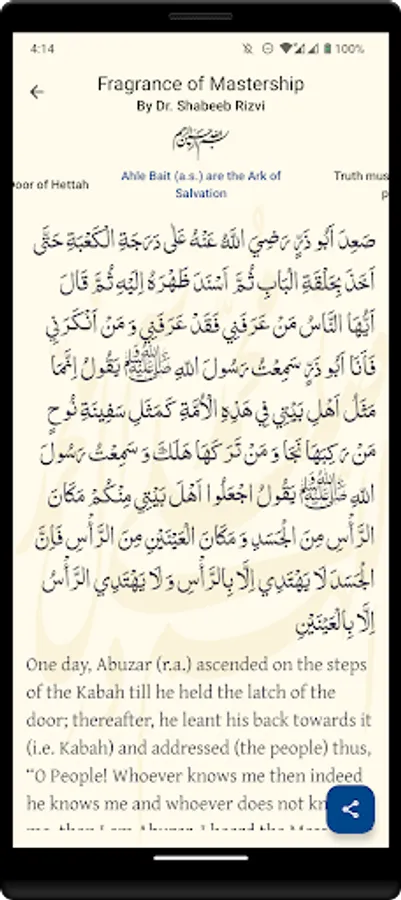 4:14
100%
Fragrance of Mastership
By Dr. Shabeeb Rizvi
oor of Hettah
Ahle Bait (a.s.) are the Ark of
Salvation
Truth mus
p
صَعِدَ أَبُو ذَرٍّ رَضِيَ اللَّهُ عَنْهُ عَلَى دَرَجَةِ الْكَعْبَةِ حَتَّى
أَخَذَ بِحَلْقَةِ الْبَابِ ثُمَّ أَسْنَدَ ظَهْرَهُ إِلَيْهِ ثُمَّ قَالَ
أَيُّهَا النَّاسُ مَنْ عَرَفَنِي فَقَدْ عَرَفَنِي وَ مَنْ أَنْكَرَنِي
فَأَنَا أَبُو ذَرٍّ سَمِعْتُ رَسُولَ اللَّهِ ﷺ يَقُولُ إِنَّمَا
مَثَلُ أَهْلِ بَيْتِي فِي هَذِهِ الْأُمَّةِ كَمَثَلِ سَفِينَةِ نُوحٍ
مَنْ رَكِبَهَا نَجَا وَ مَنْ تَرَكَهَا هَلَكَ وَ سَمِعْتُ رَسُولَ
اللَّهِ ﷺ يَقُولُ اجْعَلُوا أَهْلَ بَيْتِي مِنْكُمْ مَكَانَ
الرَّأْسِ مِنَ الْجَسَدِ وَ مَكَانَ الْعَيْنَيْنِ مِنَ الرَّأْسِ فَإِنَّ
الْجَسَدَ لَا يَهْتَدِي إِلَّا بِالرَّأْسِ وَ لَا يَهْتَدِي الرَّأْسُ
إِلَّا بِالْعَيْنَيْنِ
One day, Abuzar (r.a.) ascended on the steps
of the Kabah till he held the latch of the
door; thereafter, he leant his back towards it
(i.e. Kabah) and addressed (the people) thus,
“O People! Whoever knows me then indeed
he knows me and whoever does not kn